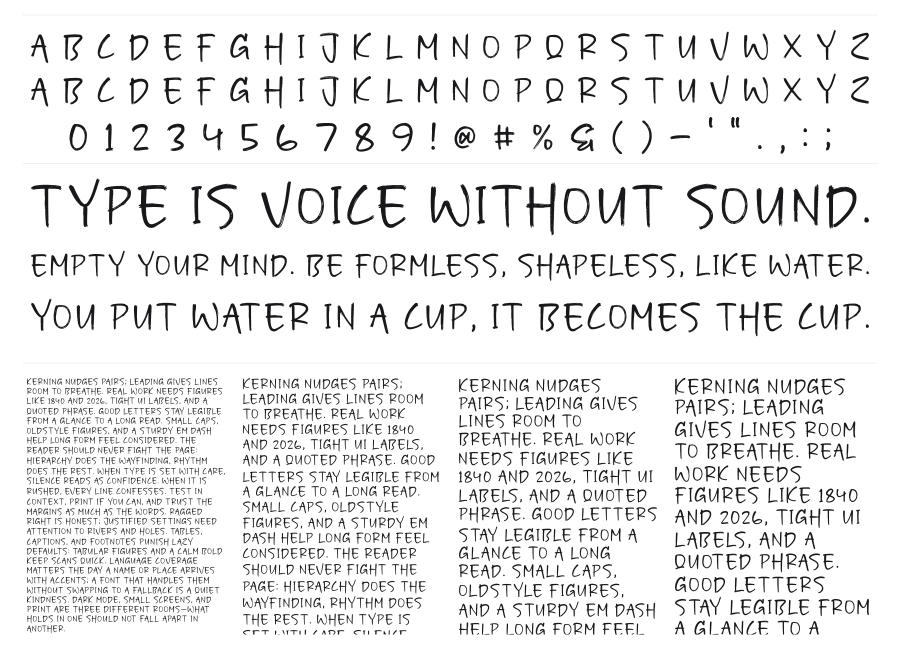 A B C D E F G H I J K L M N O P Q R S T U V W X Y Z
A B C D E F G H I J K L M N O P Q R S T U V W X Y Z
0 1 2 3 4 5 6 7 8 9 ! @ # % & ( ) – ' " . , : ;
TYPE IS VOICE WITHOUT SOUND.
EMPTY YOUR MIND. BE FORMLESS, SHAPELESS, LIKE WATER.
YOU PUT WATER IN A CUP, IT BECOMES THE CUP.
KERNING NUDGES PAIRS; LEADING GIVES LINES
ROOM TO BREATHE. REAL WORK NEEDS FIGURES
LIKE 1840 AND 2026, TIGHT UI LABELS, AND A
QUOTED PHRASE. GOOD LETTERS STAY LEGIBLE
FROM A GLANCE TO A LONG READ. SMALL CAPS,
OLDSTYLE FIGURES, AND A STURDY EM DASH
HELP LONG FORM FEEL CONSIDERED. THE
READER SHOULD NEVER FIGHT THE PAGE:
HIERARCHY DOES THE WAYFINDING, RHYTHM
DOES THE REST. WHEN TYPE IS SET WITH CARE,
SILENCE READS AS CONFIDENCE. WHEN IT IS
RUSHED, EVERY LINE CONFESSES. TEST IN
CONTEXT, PRINT IF YOU CAN, AND TRUST THE
MARGINS AS MUCH AS THE WORDS. RAGGED
RIGHT IS HONEST; JUSTIFIED SETTINGS NEED
ATTENTION TO RIVERS AND HOLES. TABLES,
CAPTIONS, AND FOOTNOTES PUNISH LAZY
DEFAULTS: TABULAR FIGURES AND A CALM BOLD
KEEP SCANS QUICK. LANGUAGE COVERAGE
MATTERS THE DAY A NAME OR PLACE ARRIVES
WITH ACCENTS; A FONT THAT HANDLES THEM
WITHOUT SWAPPING TO A FALLBACK IS A QUIET
KINDNESS. DARK MODE, SMALL SCREENS, AND
PRINT ARE THREE DIFFERENT ROOMS—WHAT
HOLDS IN ONE SHOULD NOT FALL APART IN
ANOTHER.
KERNING NUDGES PAIRS;
LEADING GIVES LINES ROOM
TO BREATHE. REAL WORK
NEEDS FIGURES LIKE 1840
AND 2026, TIGHT UI LABELS,
AND A QUOTED PHRASE. GOOD
LETTERS STAY LEGIBLE FROM
A GLANCE TO A LONG READ.
SMALL CAPS, OLDSTYLE
FIGURES, AND A STURDY EM
DASH HELP LONG FORM FEEL
CONSIDERED. THE READER
SHOULD NEVER FIGHT THE
PAGE: HIERARCHY DOES THE
WAYFINDING, RHYTHM DOES
THE REST. WHEN TYPE IS
SET WITH CARE, SILENCE
KERNING NUDGES
PAIRS; LEADING GIVES
LINES ROOM TO
BREATHE. REAL WORK
NEEDS FIGURES LIKE
1840 AND 2026, TIGHT UI
LABELS, AND A QUOTED
PHRASE. GOOD LETTERS
STAY LEGIBLE FROM A
GLANCE TO A LONG
READ. SMALL CAPS,
OLDSTYLE FIGURES,
AND A STURDY EM DASH
HELP LONG FORM FEEL
KERNING NUDGES
PAIRS; LEADING
GIVES LINES ROOM
TO BREATHE. REAL
WORK NEEDS
FIGURES LIKE 1840
AND 2026, TIGHT UI
LABELS, AND A
QUOTED PHRASE.
GOOD LETTERS
STAY LEGIBLE FROM
A GLANCE TO A